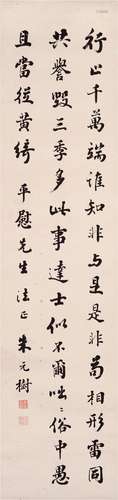 行止千萬端誰知非与是是非苟相形雷同
共譽毀三季多此事達士似不爾咄咄俗中愚
且當從黃綺 平慰先生法正 朱元樹